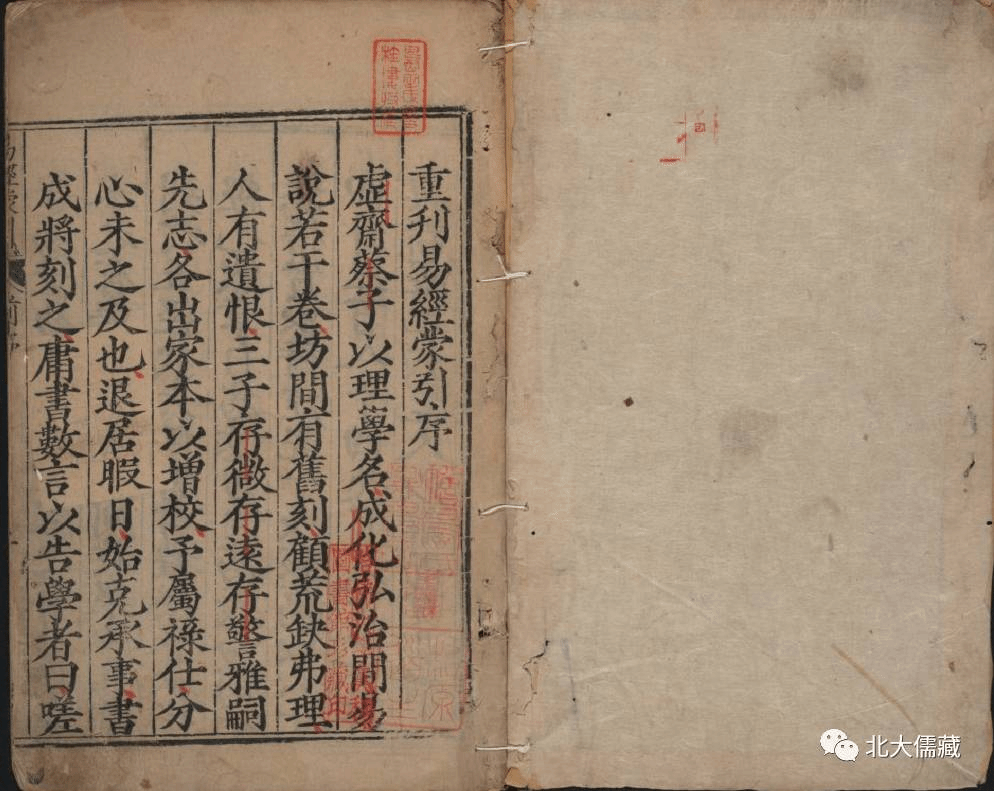 重刋易經蒙引序
虛齋蔡子以理學名成化弘治間易
說若干卷坊間有舊刻顧荒缺弗理
人有遺恨三子存微存遠存警雅嗣
先志各出家本以增校予屬祿仕分
心未之及也退居暇日始克承事書
成將刻之庸書數言以告學者曰嗟
北大儒藏